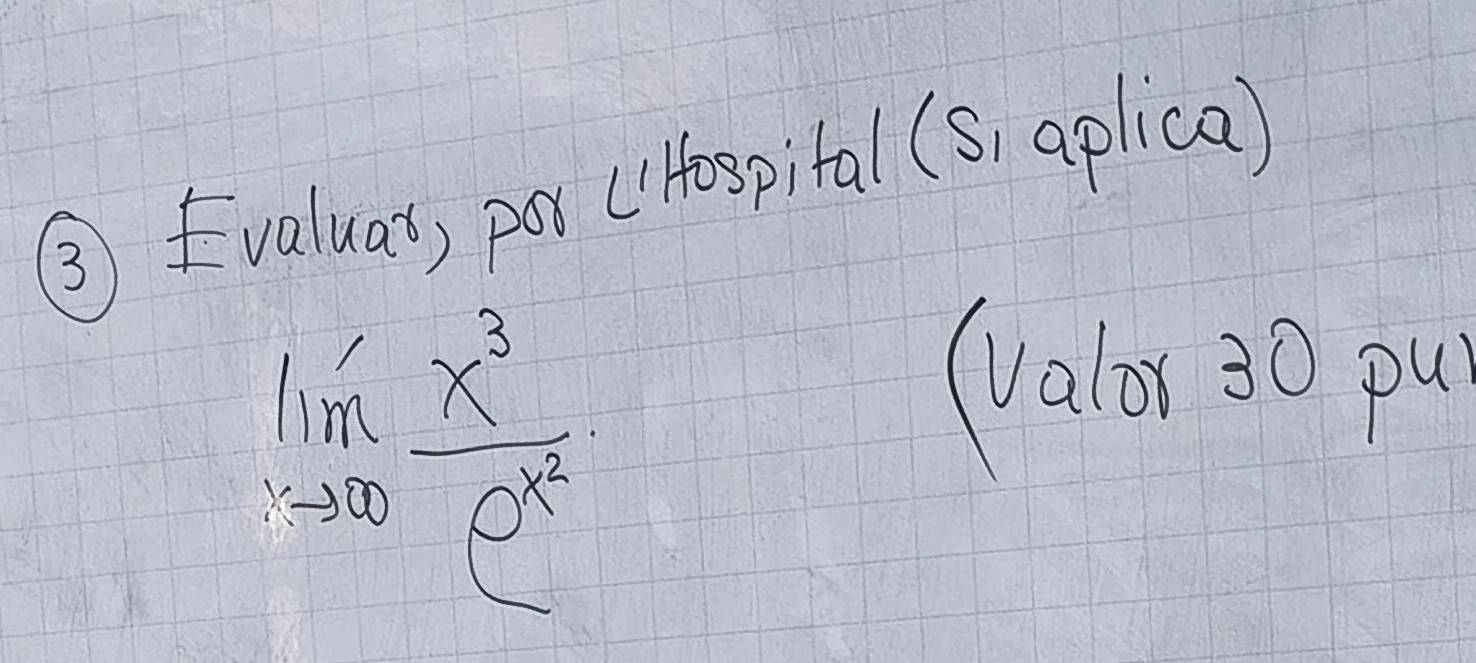 ③ Evaluar, por L'Hospital (Si aplica)
lím x³ / e^x² (Valor 30 pu
x→∞